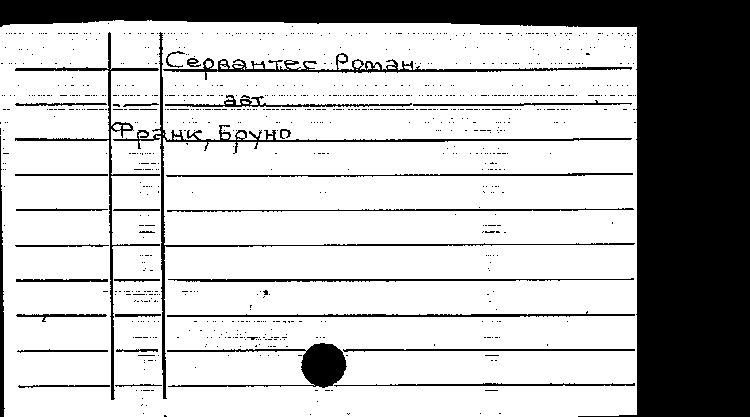 Сервантес Роман.
авт.
Франк, Бруно